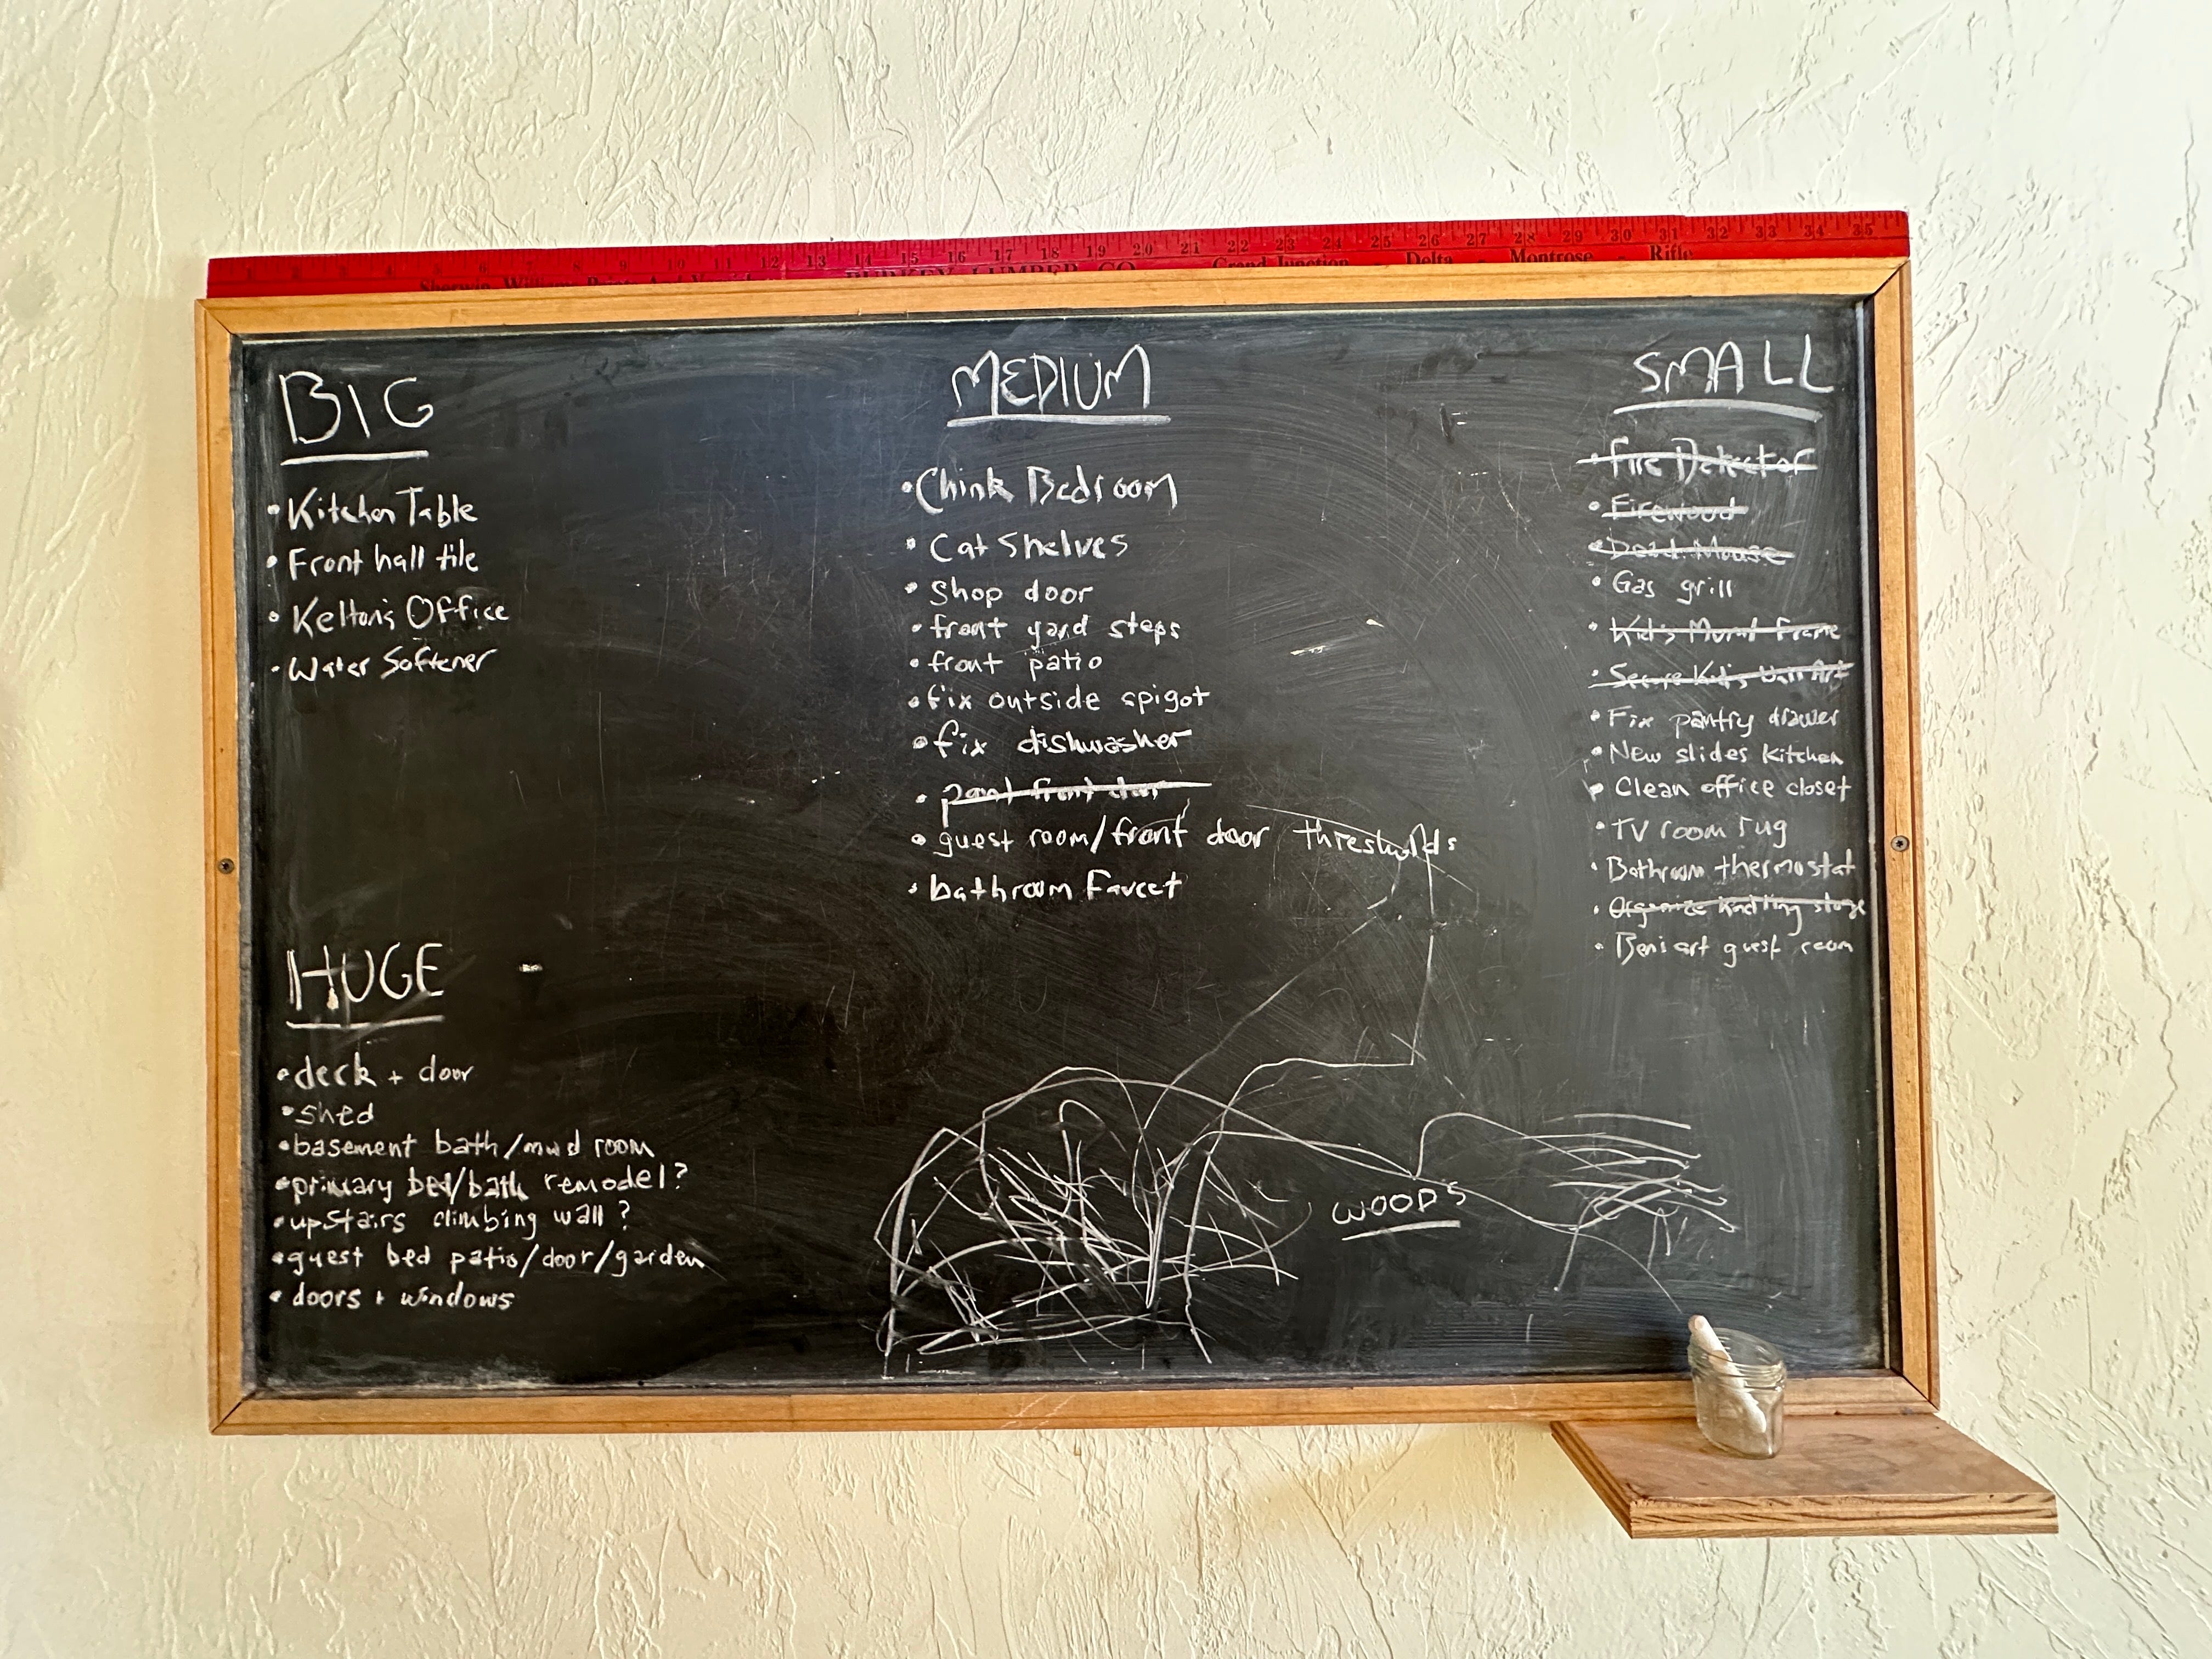 1 2 3 4 5 6 7 8 9 10 11 12 13 14 15 16 17 18 19 20 21 22 23 24 25 26 27 28 29 30 31 32 33 34 35
Sherwin Williams Paints And LUMBER CO. Grand Junction - Delta - Montrose - Rifle
BIG
• Kitchen Table
• Front hall tile
• Kelton's Office
• Water Softener
HUGE
• deck + door
• shed
• basement bath/mud room
• primary bed/bath remodel?
• upstairs climbing wall?
• guest bed patio/door/garden
• doors + windows
MEDIUM
• Chink Bedroom
• Cat Shelves
• Shop door
• front yard steps
• front patio
• fix outside spigot
• fix dishwasher
• paint front door
• guest room/front door thresholds
• bathroom Faucet
SMALL
• Fire Detector
• Firewood
• Dead Mouse
• Gas grill
• Kid's Mural Frame
• Secure Kid's Wall Art
• Fix pantry drawer
• New slides Kitchen
• Clean office closet
• TV room rug
• Bathroom thermostat
• Organize knitting
• Ben's art guest room
WOODS